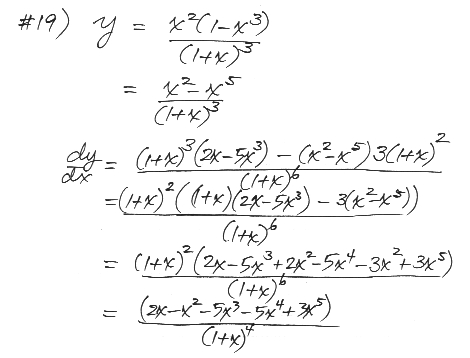 #19) y = x²(1-x³) / (1+x)³
= x²-x⁵ / (1+x)³
dy/dx = (1+x)³(2x-5x³) - (x²-x⁵)3(1+x)² / (1+x)⁶
= (1+x)²((1+x)(2x-5x³) - 3(x²-x⁵)) / (1+x)⁶
= (1+x)²(2x-5x³+2x²-5x⁴-3x²+3x⁵) / (1+x)⁶
= (2x-x²-5x³-5x⁴+3x⁵) / (1+x)⁴